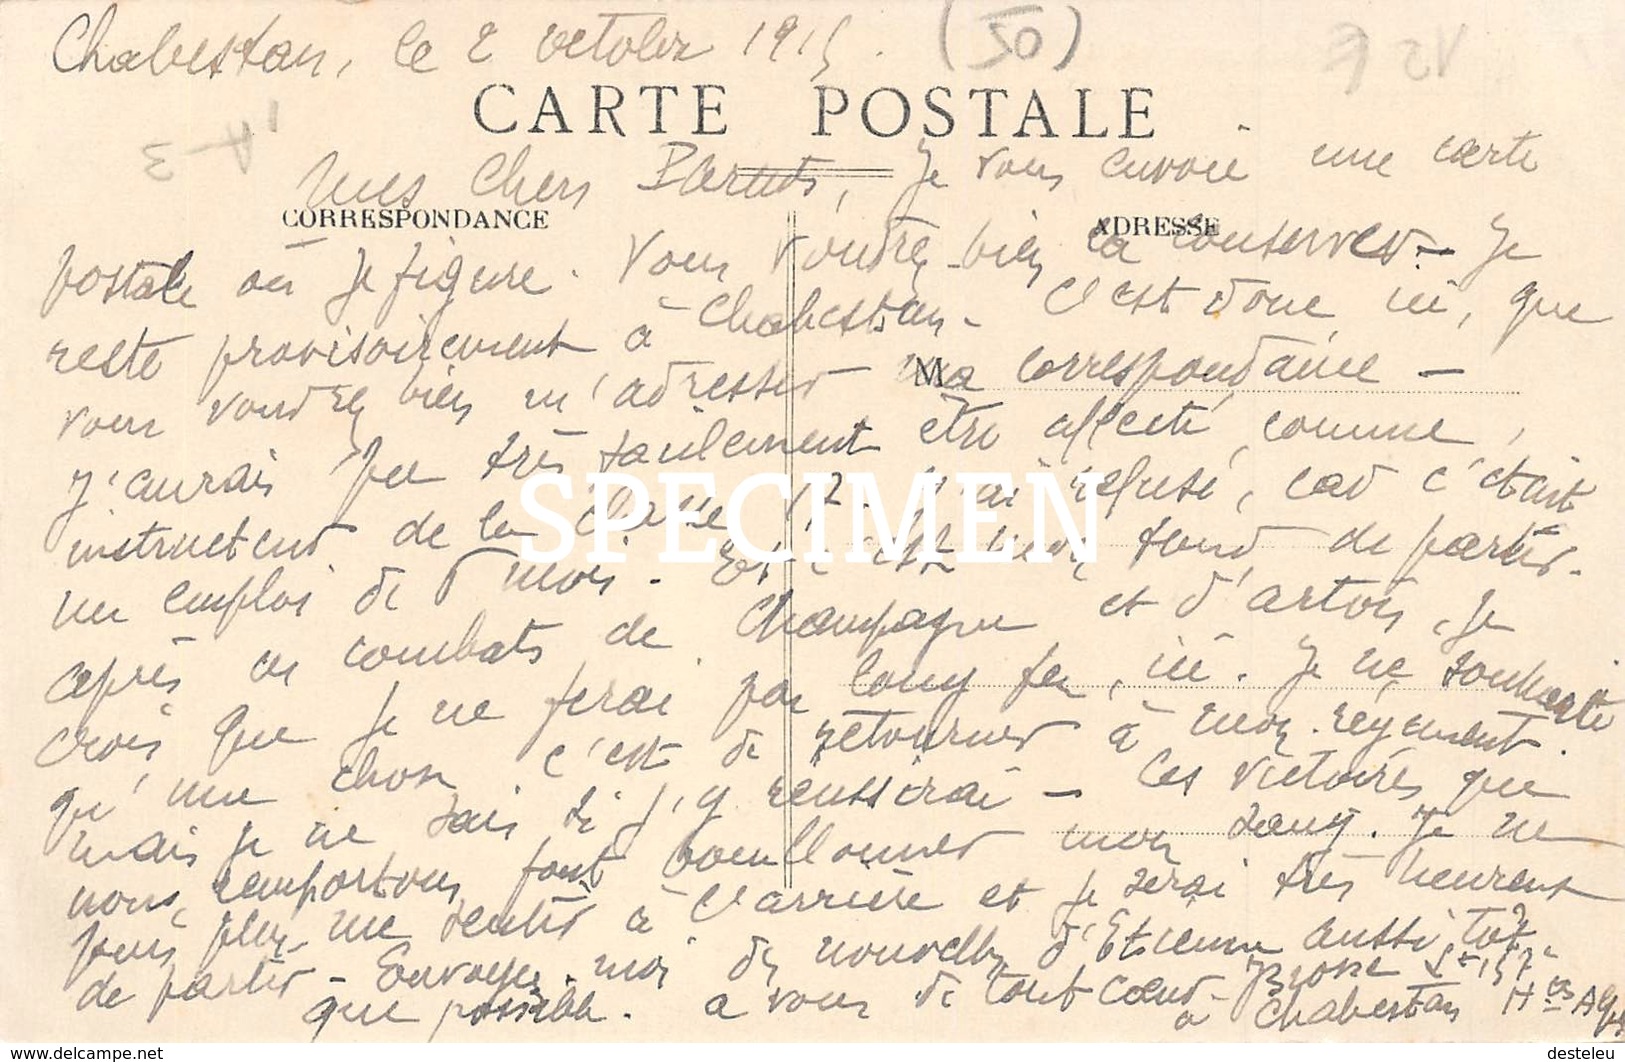 Chabestan, le 2 octobre 1915. (50)
CARTE POSTALE
Mes Chers Parents, Je vous envoie une carte
CORRESPONDANCE
ADRESSE
postale où je figure. Vous voudrez bien la conserver - Je
reste provisoirement à Chabestan. C'est donc ici, que
vous voudrez bien m'adresser ma correspondance -
M
J'aurais pu très facilement être affecté, comme,
instructeur de la classe 17. J'ai refusé, car c'était
un emploi de 6 mois. Et c'est bien tard de partir.
après ces combats de Champagne et d'Artois, je
crois que je ne ferai pas long feu, ici. Je ne souhaite
qu'une chose c'est de retourner à mon régiment.
mais je ne sais si j'y réussirai - Ces victoires que
nous remportons font bouillonner mon sang. Je ne
puis plus me sentir à l'arrière et je serai très heureux
de partir - Envoyez-moi des nouvelles d'Etienne aussitôt
que possible. à vous de tout coeur - JBrosse Sgt 157e
à Chabestan Htes Alpes
SPECIMEN
delcampe.net
desteleu